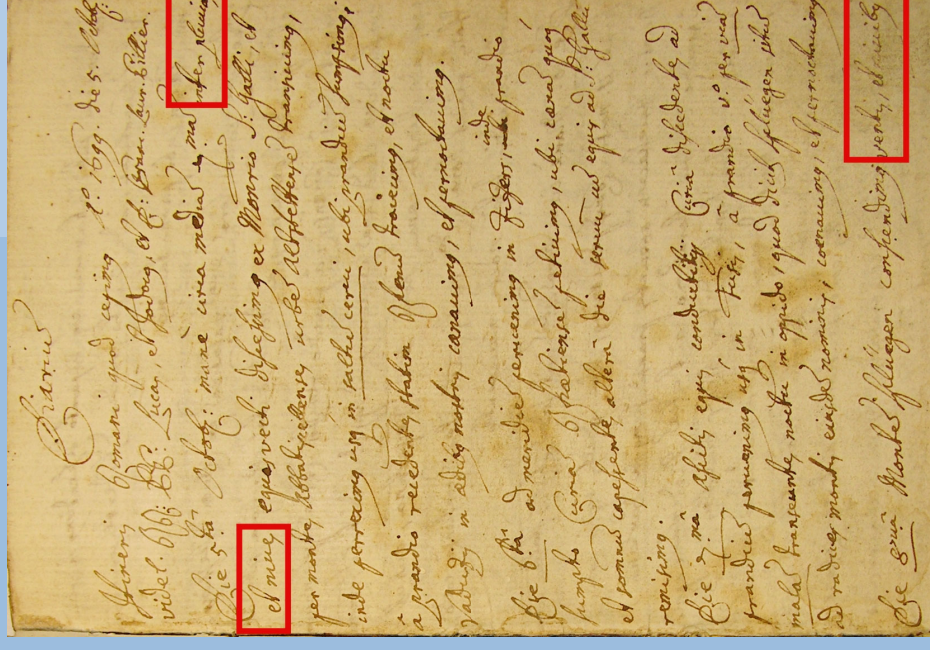 Diarium
Itineris Romani quod cepimus Aº 1699. die 5. Octob:
videl. RR: PP: Lucas, et Jodocus, et Fr: Laur: Billieu.
Die 5tâ Octob: manè circa mediam inter pluvias
et nives equis vecti discessimus ex Monrio S: Galli, et
per montes Abbatiscellenses, urbem Altstettensem transivimus,
inde perreximus usq in ubi prandium sumpsimus
à prandio recedentes statim Rhenum traiecimus, et noctu
Vadutij in aedibus nostris coenavimus, et pernoctavimus.
Die 6ta ad meridiem pervenimus in inde prandio
sumpto Curiam Rhaetiensem petivimus, ubi coena quoq
et somno alterâ die servum cum equis ad S: Gallū
remisimus.
Die 7mâ equis conductitijs Curiâ discedentes ad
prandium pervenimus usq in Tusis, à prandio vº per viā
malam transeuntes noctu in oppido, quod dicitur Spluegen situ
ad radices montis eiusdem nominis, coenavimus, et pernoctavimus
Die 8uâ Montem Spluegen conscendimus ventis, et nivibus